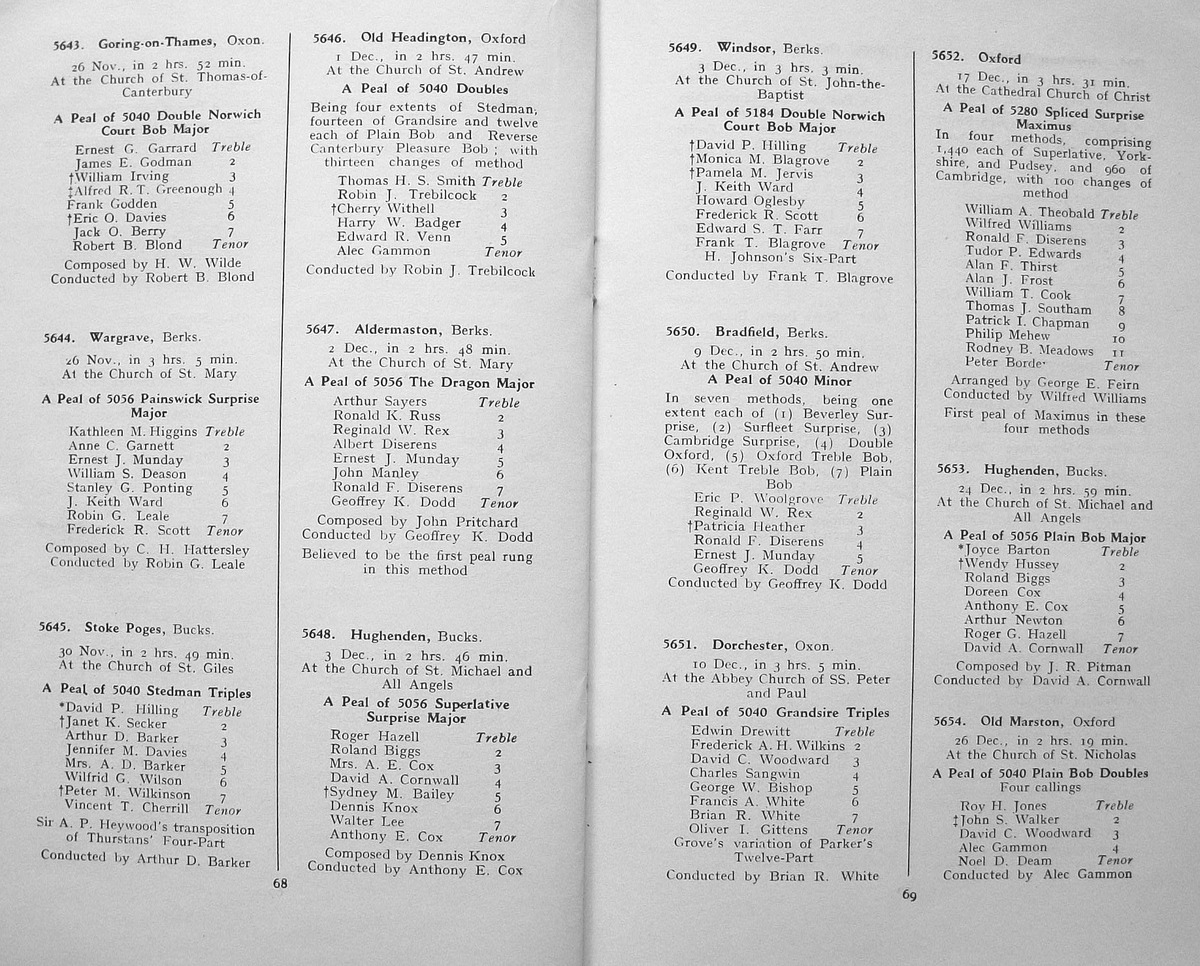 5643. Goring-on-Thames, Oxon.
26 Nov., in 2 hrs. 52 min.
At the Church of St. Thomas-of-
Canterbury
A Peal of 5040 Double Norwich
Court Bob Major
Ernest G. Garrard Treble
James E. Godman 2
†William Irving 3
‡Alfred R. T. Greenough 4
Frank Godden 5
†Eric O. Davies 6
Jack O. Berry 7
Robert B. Blond Tenor
Composed by H. W. Wilde
Conducted by Robert B. Blond
5644. Wargrave, Berks.
26 Nov., in 3 hrs. 5 min.
At the Church of St. Mary
A Peal of 5056 Painswick Surprise
Major
Kathleen M. Higgins Treble
Anne C. Garnett 2
Ernest J. Munday 3
William S. Deason 4
Stanley G. Ponting 5
J. Keith Ward 6
Robin G. Leale 7
Frederick R. Scott Tenor
Composed by C. H. Hattersley
Conducted by Robin G. Leale
5645. Stoke Poges, Bucks.
30 Nov., in 2 hrs. 49 min.
At the Church of St. Giles
A Peal of 5040 Stedman Triples
*David P. Hilling Treble
†Janet K. Secker 2
Arthur D. Barker 3
Jennifer M. Davies 4
Mrs. A. D. Barker 5
Wilfrid G. Wilson 6
†Peter M. Wilkinson 7
Vincent T. Cherrill Tenor
Sir A. P. Heywood's transposition
of Thurstans' Four-Part
Conducted by Arthur D. Barker
5646. Old Headington, Oxford
1 Dec., in 2 hrs. 47 min.
At the Church of St. Andrew
A Peal of 5040 Doubles
Being four extents of Stedman,
fourteen of Grandsire and twelve
each of Plain Bob and Reverse
Canterbury Pleasure Bob ; with
thirteen changes of method
Thomas H. S. Smith Treble
Robin J. Trebilcock 2
†Cherry Withell 3
Harry W. Badger 4
Edward R. Venn 5
Alec Gammon Tenor
Conducted by Robin J. Trebilcock
5647. Aldermaston, Berks.
2 Dec., in 2 hrs. 48 min.
At the Church of St. Mary
A Peal of 5056 The Dragon Major
Arthur Sayers Treble
Ronald K. Russ 2
Reginald W. Rex 3
Albert Diserens 4
Ernest J. Munday 5
John Manley 6
Ronald F. Diserens 7
Geoffrey K. Dodd Tenor
Composed by John Pritchard
Conducted by Geoffrey K. Dodd
Believed to be the first peal rung
in this method
5648. Hughenden, Bucks.
3 Dec., in 2 hrs. 46 min.
At the Church of St. Michael and
All Angels
A Peal of 5056 Superlative
Surprise Major
Roger Hazell Treble
Roland Biggs 2
Mrs. A. E. Cox 3
David A. Cornwall 4
†Sydney M. Bailey 5
Dennis Knox 6
Walter Lee 7
Anthony E. Cox Tenor
Composed by Dennis Knox
Conducted by Anthony E. Cox
68
5649. Windsor, Berks.
3 Dec., in 3 hrs. 3 min.
At the Church of St. John-the-
Baptist
A Peal of 5184 Double Norwich
Court Bob Major
†David P. Hilling Treble
†Monica M. Blagrove 2
†Pamela M. Jervis 3
J. Keith Ward 4
Howard Oglesby 5
Frederick R. Scott 6
Edward S. T. Farr 7
Frank T. Blagrove Tenor
H. Johnson's Six-Part
Conducted by Frank T. Blagrove
5650. Bradfield, Berks.
9 Dec., in 2 hrs. 50 min.
At the Church of St. Andrew
A Peal of 5040 Minor
In seven methods, being one
extent each of (1) Beverley Sur-
prise, (2) Surfleet Surprise, (3)
Cambridge Surprise, (4) Double
Oxford, (5) Oxford Treble Bob,
(6) Kent Treble Bob, (7) Plain
Bob
Eric P. Woolgrove Treble
Reginald W. Rex 2
†Patricia Heather 3
Ronald F. Diserens 4
Ernest J. Munday 5
Geoffrey K. Dodd Tenor
Conducted by Geoffrey K. Dodd
5651. Dorchester, Oxon.
10 Dec., in 3 hrs. 5 min.
At the Abbey Church of SS. Peter
and Paul
A Peal of 5040 Grandsire Triples
Edwin Drewitt Treble
Frederick A. H. Wilkins 2
David C. Woodward 3
Charles Sangwin 4
George W. Bishop 5
Francis A. White 6
Brian R. White 7
Oliver I. Gittens Tenor
Grove's variation of Parker's
Twelve-Part
Conducted by Brian R. White
5652. Oxford
17 Dec., in 3 hrs. 31 min.
At the Cathedral Church of Christ
A Peal of 5280 Spliced Surprise
Maximus
In four methods, comprising
1,440 each of Superlative, York-
shire, and Pudsey, and 960 of
Cambridge, with 100 changes of
method
William A. Theobald Treble
Wilfred Williams 2
Ronald F. Diserens 3
Tudor P. Edwards 4
Alan F. Thirst 5
Alan J. Frost 6
William T. Cook 7
Thomas J. Southam 8
Patrick I. Chapman 9
Philip Mehew 10
Rodney B. Meadows 11
Peter Border Tenor
Arranged by George E. Feirn
Conducted by Wilfred Williams
First peal of Maximus in these
four methods
5653. Hughenden, Bucks.
24 Dec., in 2 hrs. 59 min.
At the Church of St. Michael and
All Angels
A Peal of 5056 Plain Bob Major
*Joyce Barton Treble
†Wendy Hussey 2
Roland Biggs 3
Doreen Cox 4
Anthony E. Cox 5
Arthur Newton 6
Roger G. Hazell 7
David A. Cornwall Tenor
Composed by J. R. Pitman
Conducted by David A. Cornwall
5654. Old Marston, Oxford
26 Dec., in 2 hrs. 19 min.
At the Church of St. Nicholas
A Peal of 5040 Plain Bob Doubles
Four callings
Roy H. Jones Treble
‡John S. Walker 2
David C. Woodward 3
Alec Gammon 4
Noel D. Deam Tenor
Conducted by Alec Gammon
69